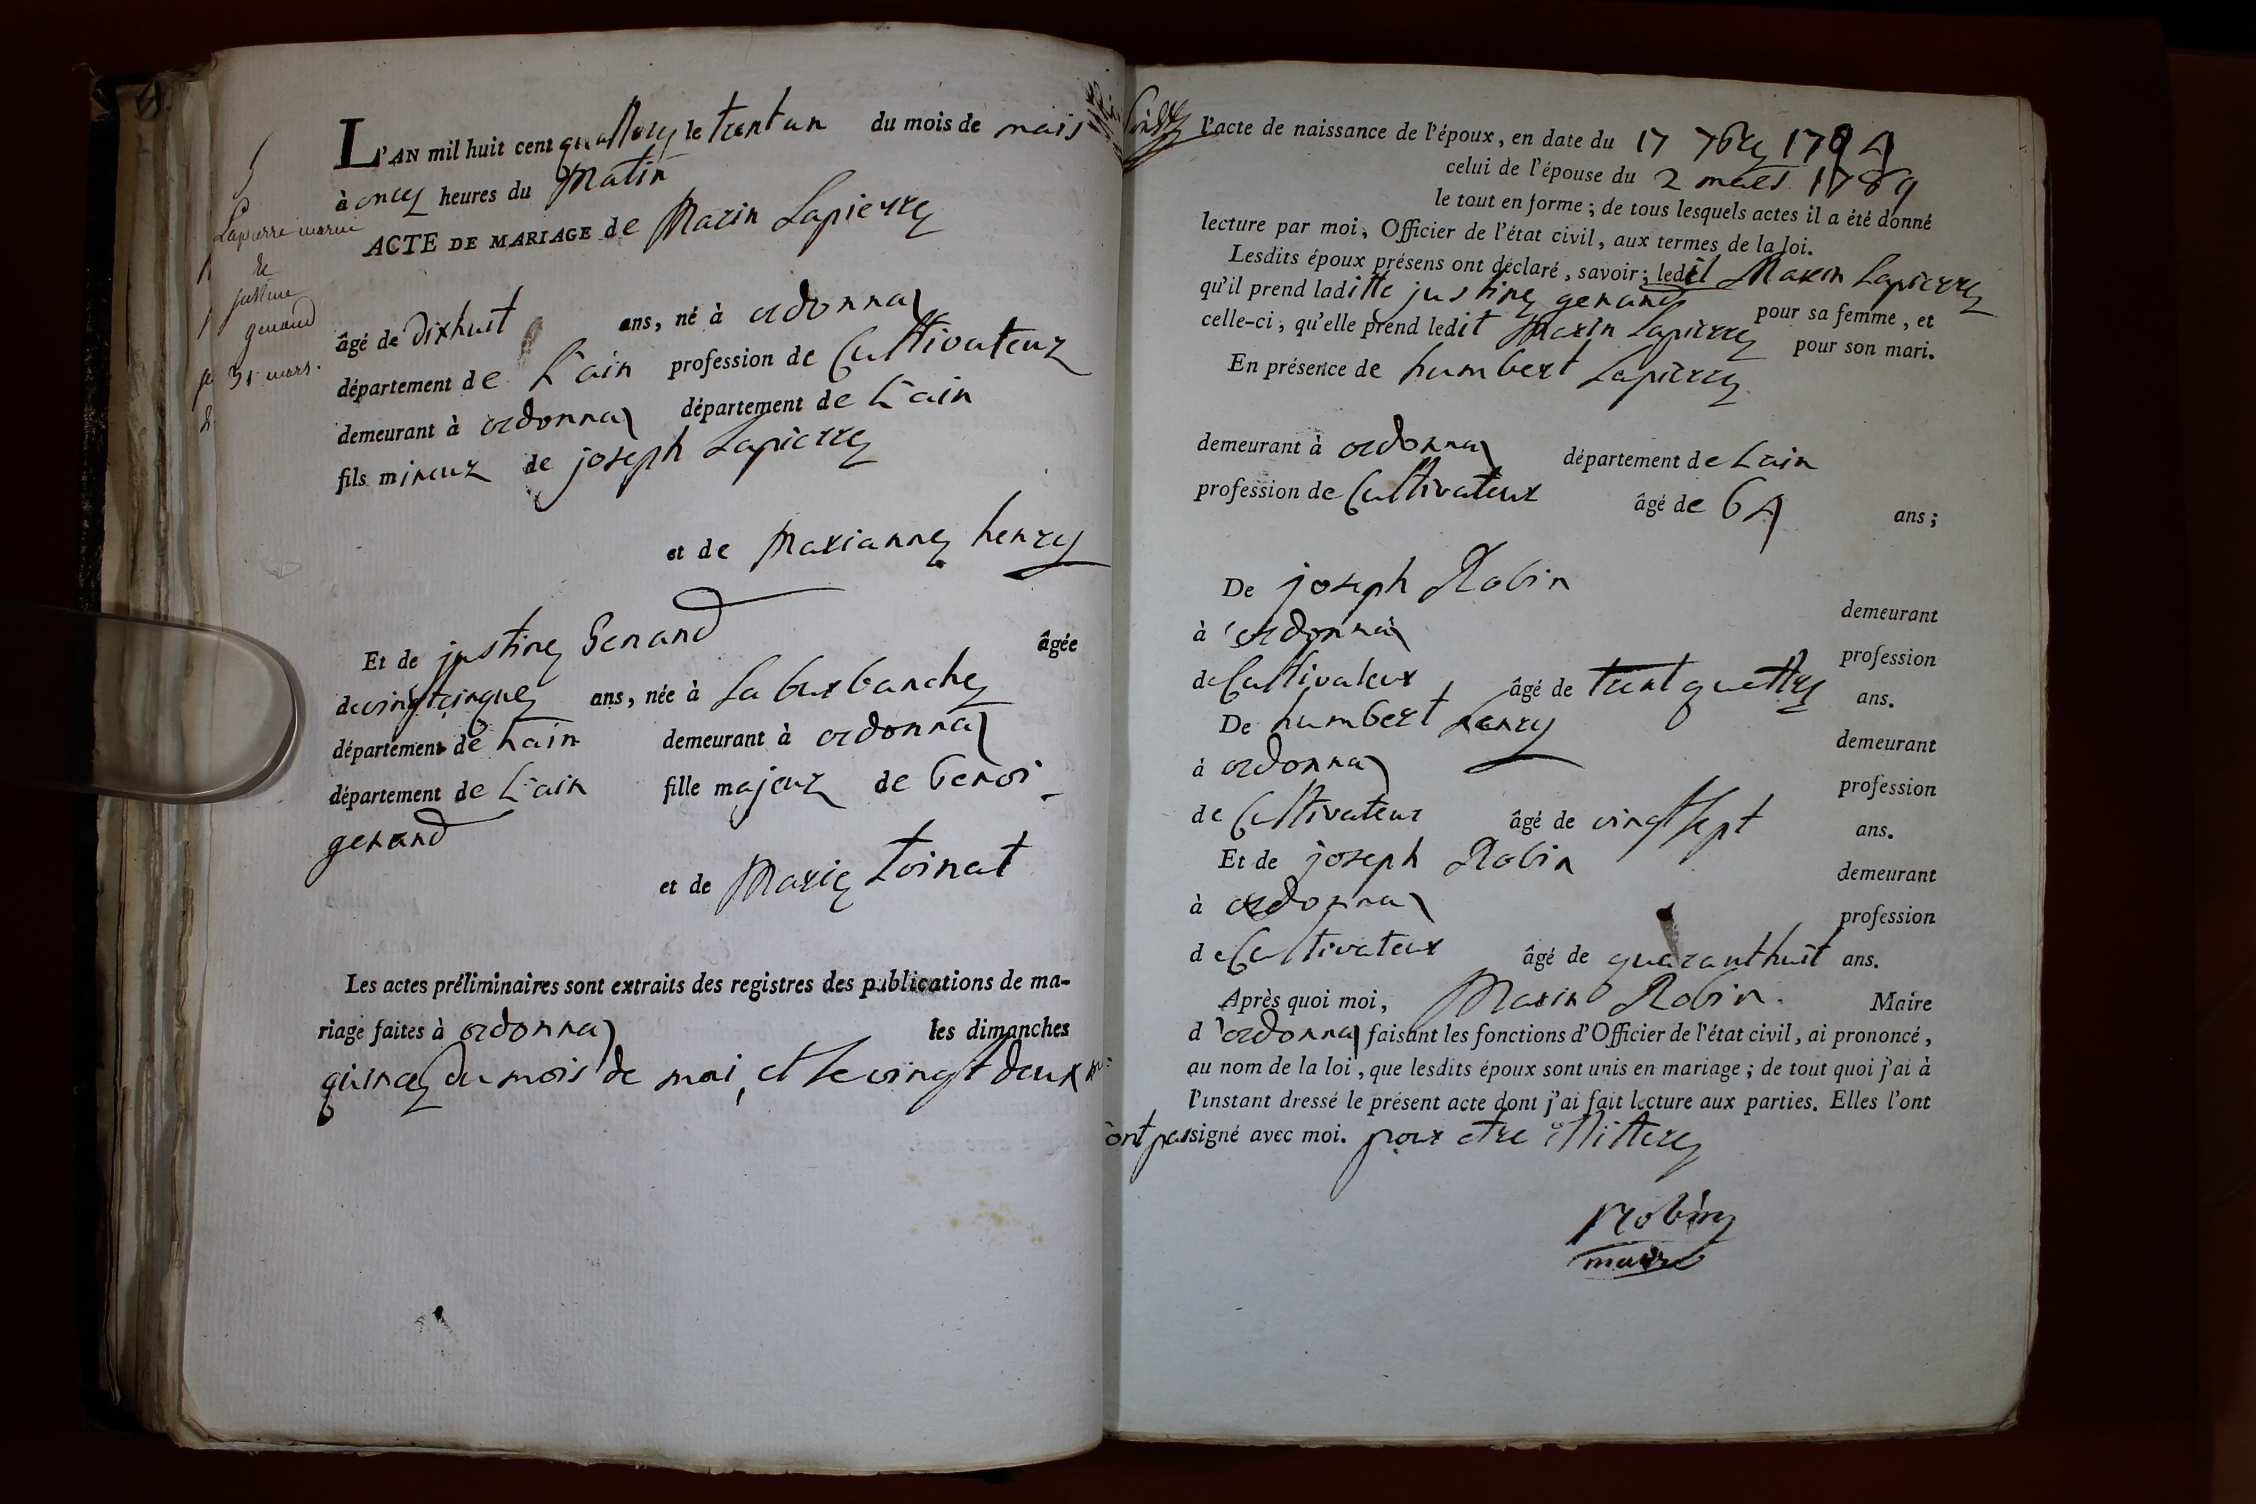 5
Lapierre marin
&
justine
genand
31 mars.
L'AN mil huit cent quattorz le trent un du mois de mais
à onez heures du Matin
ACTE DE MARIAGE de Marin Lapierre
âgé de dixhuit ans, né à ordonnaz
département de L'ain profession de Cultivateur
demeurant à ordonnaz département de L'ain
fils mineur de joseph Lapierre
et de Marianne henry
Et de justine Genand âgée
de vingtcinque ans, née à La burbanche
département de L'ain demeurant à ordonnaz
département de L'ain fille majeur de benoi
genand
et de Marie toinat
Les actes préliminaires sont extraits des registres des publications de ma-
riage faites à ordonnaz les dimanches
quinze du mois de mai, et Le vingt deux
l'acte de naissance de l'époux, en date du 17 7bre 1794
celui de l'épouse du 2 mars 1789
le tout en forme ; de tous lesquels actes il a été donné
lecture par moi, Officier de l'état civil, aux termes de la loi.
Lesdits époux présens ont déclaré, savoir ; ledit Marin Lapierre
qu'il prend laditte justine genand pour sa femme, et
celle-ci, qu'elle prend ledit Marin Lapierre pour son mari.
En présence de humbert Lapierre
demeurant à ordonnaz département de Lain
profession de Cultivateur âgé de 64 ans ;
De joseph Robin demeurant
à ordonnaz profession
de Cultivateur âgé de trentquattre ans.
De humbert henry demeurant
à ordonnaz profession
de Cultivateur âgé de vingtsept ans.
Et de joseph Robin demeurant
à ordonnaz profession
de Cultivateur âgé de quaranthuit ans.
Après quoi moi, Marin Robin. Maire
d'ordonnaz faisant les fonctions d'Officier de l'état civil, ai prononcé,
au nom de la loi, que lesdits époux sont unis en mariage ; de tout quoi j'ai à
l'instant dressé le présent acte dont j'ai fait lecture aux parties. Elles l'ont
ont pas signé avec moi. pour etre illittere
robin
maire